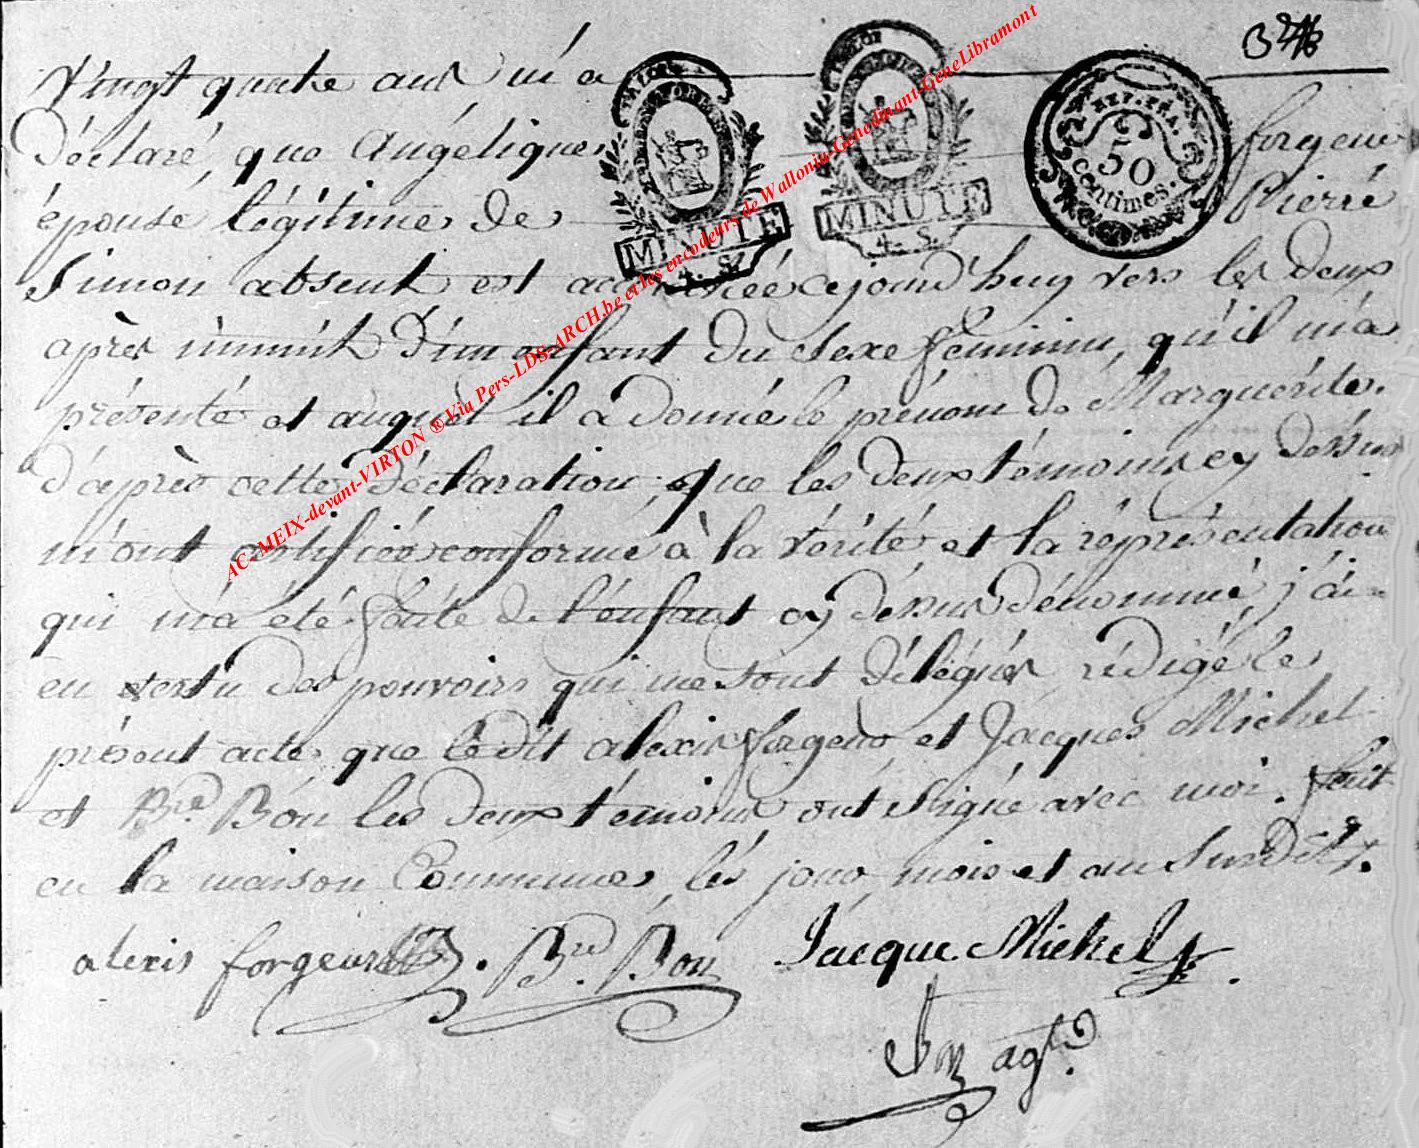 vingt quatre ans m'a
déclaré, que Angélique forgeur
épouse légitime de Pierre
Simon absent est accouchée cejourd'huy vers les deux
après minuit d'un enfant du sexe féminin, qu'il m'a
présenté et auquel il a donné le prénom de Marguérite.
d'après cette déclaration, que les deux témoins cy dessus
m'ont certifiée conforme à la vérité et la réprésentation
qui m'a été faite de l'enfant cy dessus dénommé, j'ai
en vertu des pouvoirs qui me sont délégués, rédigé le
présent acte que ledit alexis forgeur et Jacques Michel
et Bre. Bon les deux témoins ont signé avec moi. fait
en la maison Commune, les jour, mois et an susdits.
alexis forgeur . Bre. Bon Jacque Michel
agt.
TIMBRE
MINUTE
4. S.
MINUTE
4. S.
REP. FRA.
50
centimes.
AC-MEIX-devant-VIRTON ® Via Pers-LDS-ARCH.be et les encodeurs de Wallonia-Genedinant-GeneLibramont